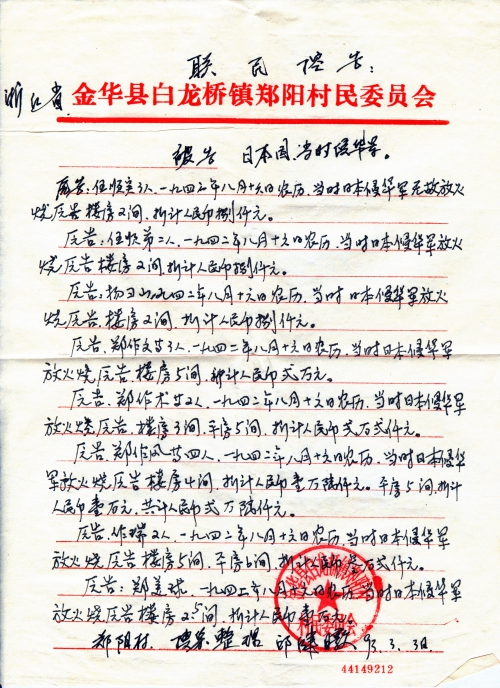 联民控告:
浙江省 金华县白龙桥镇郑阳村民委员会
被告 日本国,当时侵华军。
原告:伍顺芝3人,一九四二年八月十六日农历,当时日本侵华军无故放火
烧原告楼房2间,折计人民币捌仟元。
原告:伍 第二人,一九四二年八月十六日农历,当时日本侵华军放火
烧原告楼房2间,折计人民币捌仟元。
原告:杨 一九四二年八月十六日农历,当时日本侵华军放火
烧原告,楼房2间,折计人民币捌仟元。
原告,郑作 3人,一九四二年八月十六日农历,当时日本侵华军
放火烧原告,楼房5间,折计人民币贰万元。
原告,郑作 2人,一九四二年八月十六日农历,当时日本侵华军
放火烧原告,楼房3间,平房5间,折计人民币贰万贰仟元。
原告,郑作凤 四人,一九四二年八月十六日农历,当时日本侵华
军放火烧原告楼房4间,折计人民币壹万陆仟元。平房5间,折计
人民币壹万元,共计人民币贰万陆仟元。
原告,作瑞2人,一九四二年八月十六日农历,当时日本侵华军
放火烧,原告楼房5间,平房6间,折计人民币叁万贰仟元。
原告:郑美球,一九四二年八月十六日农历,当时日本侵华军
放火烧原告楼房2.5间,折计人民币壹万元。
郑阳村 整理 邱 93.3.3日
村民委员会
44149212